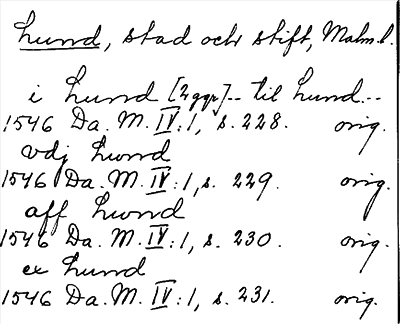 Lund, stad och stift, Malm.l.
i Lund [2 ggr] -- til Lund...
1546 Da. M. IV:1, s. 228. orig.
vdj Lwnd
1546 Da. M. IV:1, s. 229. orig.
aff Lwnd
1546 Da. M. IV:1, s. 230. orig.
ex Lund
1546 Da. M. IV:1, s. 231. orig.